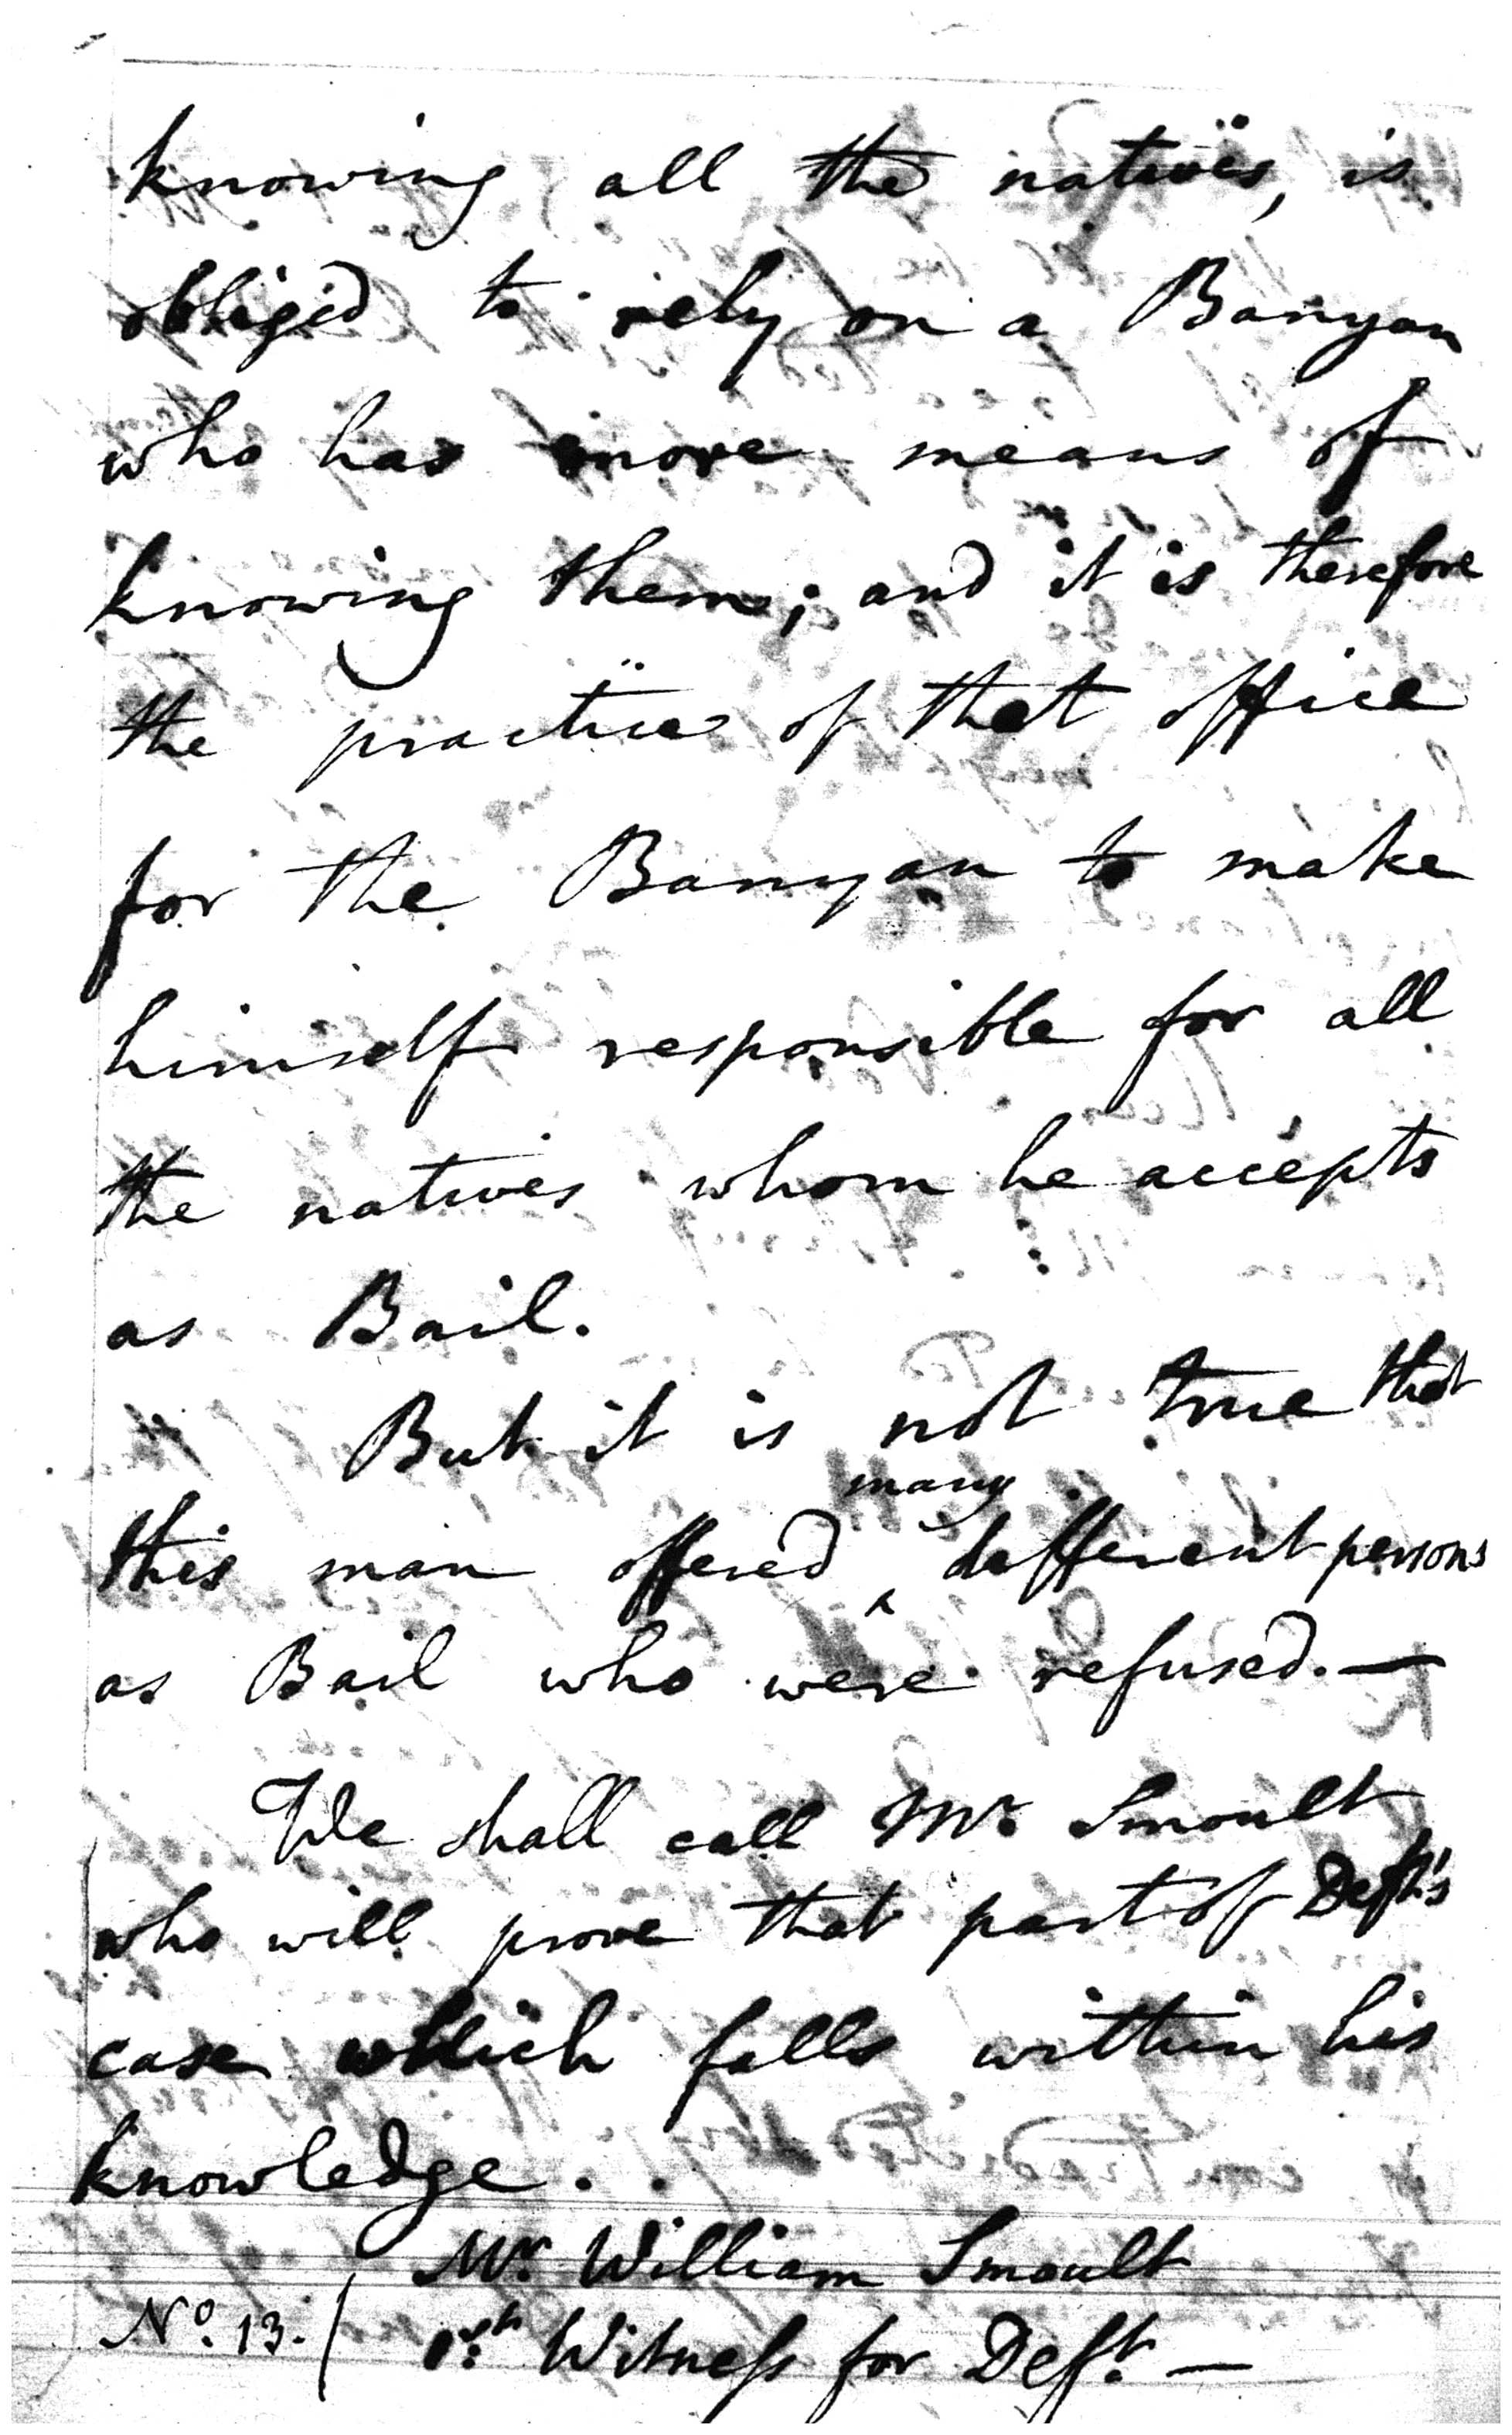 knowing all the natives, is
obliged to rely on a Banyan
who has more means of
knowing them; and it is therefore
the practice of that office
for the Banyan to make
himself responsible for all
the natives whom he accepts
as Bail.
But it is not true that
many
this man offered ^ different persons
as Bail who were refused. —
We shall call Mr. Smoult
who will prove that part of Deft's
case which falls within his
knowledge.
Mr. William Smoult
No. 13. 1st Witness for Deft. —